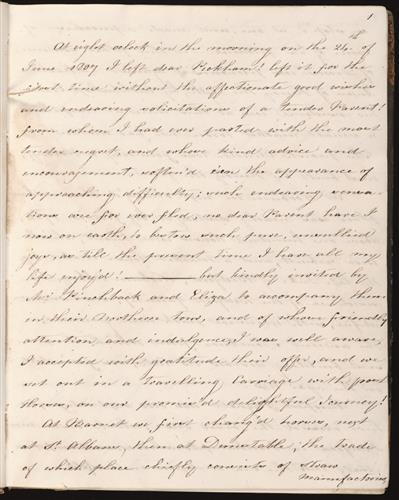 1
At eight oclock in the morning on the 24th of
June 1807 I left dear Peckham! left it for the
first time without the affectionate good wishes
and endearing solicitations of a tender Parent!
from whom I had ever parted with the most
tender regret, and whose kind advice and
encouragement, soften'd even the appearance of
approaching difficulty; such endearing sensa-
tions are for ever fled, no dear Parent have I
now on earth, to bestow such pure, unmixed
joys, as till the present time I have all my
life enjoy'd! ——— but kindly invited by
Mr Pinchback and Eliza to accompany them
in their Northern tour, and of whose friendly
attention and indulgence, I was well aware,
I accepted with gratitude their offer, and we
set out in a Travelling Carriage with post
Horses, on our promis'd delightful Journey!
At Barnet we first chang'd horses, next
at St. Albans, then at Dunstable, the trade
of which place chiefly consists of Straw
manufactories